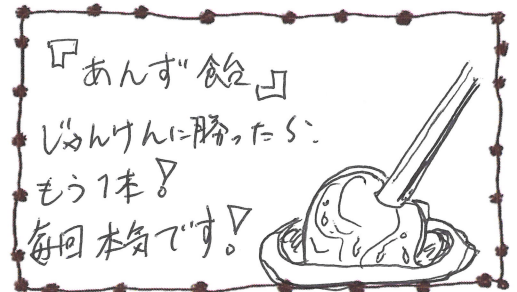 『あんず飴』
じゃんけんに勝ったら、
もう1本!
毎回本気です!